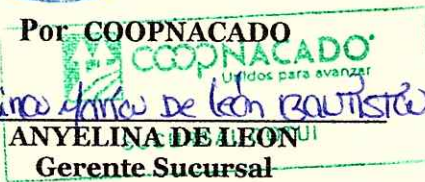 Por COOPNACADO
COOPNACADO
Unidos para avanzar
María De León BAUTISTA
ANYELINA DE LEON
Gerente Sucursal